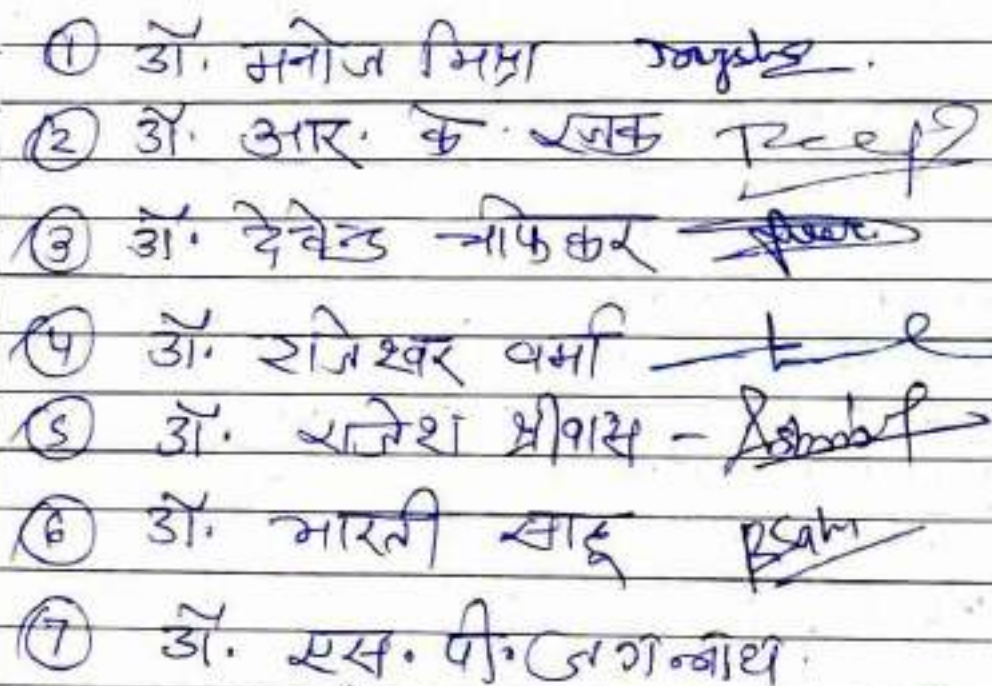 ① डॉ. मनोज मिश्रा
② डॉ. आर. के. रजक
③ डॉ. देवेन्द्र
④ डॉ. राजेश्वर वर्मा
⑤ डॉ. राजेश श्रीवास -
⑥ डॉ. भारती साहू BSahu
⑦ डॉ. एस. पी. जगन्नाथ